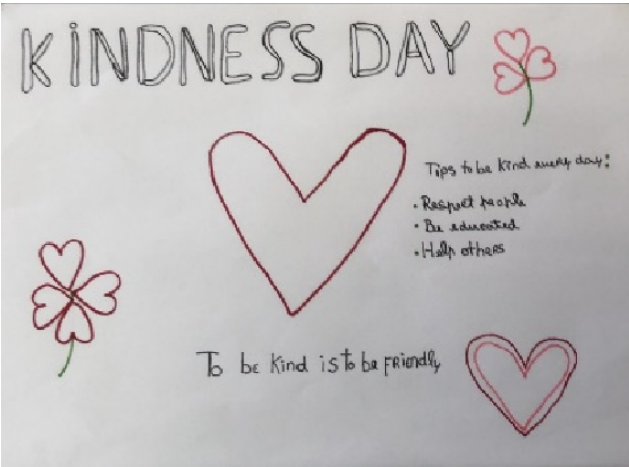 KiNDNESS DAY
Tips to be kind every day:
• Respect people
• Be educated
• Help others
To be kind is to be friendly